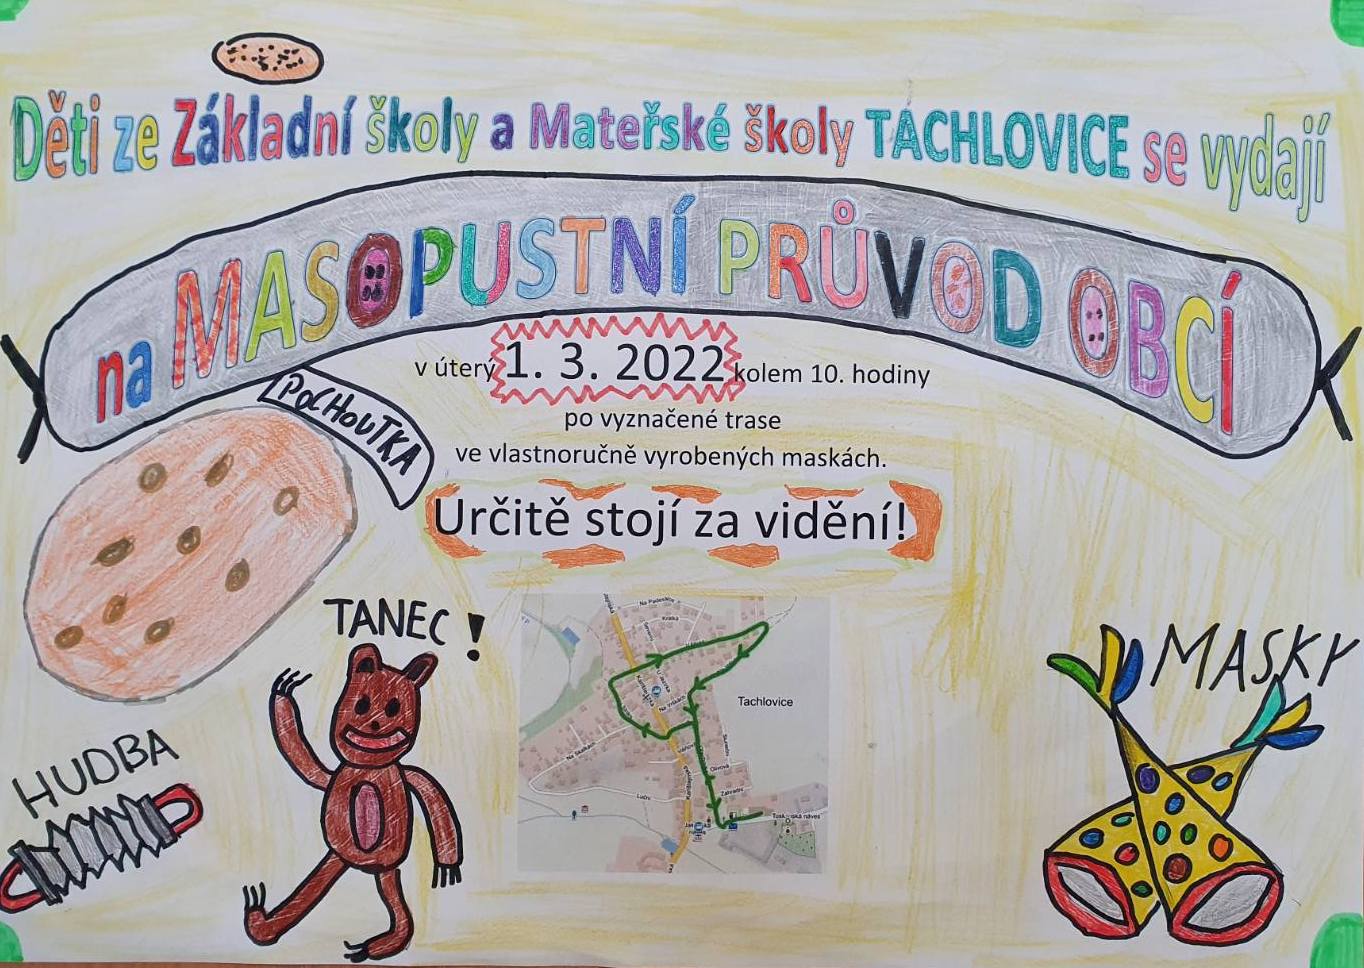 Děti ze Základní školy a Mateřské školy TACHLOVICE se vydají
na MASOPUSTNÍ PRŮVOD OBCÍ
v úterý 1. 3. 2022 kolem 10. hodiny
po vyznačené trase
ve vlastnoručně vyrobených maskách.
POCHOUTKA
Určitě stojí za vidění!
TANEC!
MASKY
HUDBA
Na Padesátku
Krátká
Tachlovice
Na Vršíkách
Na Skalkách
Olivová
Luční
Zahradní